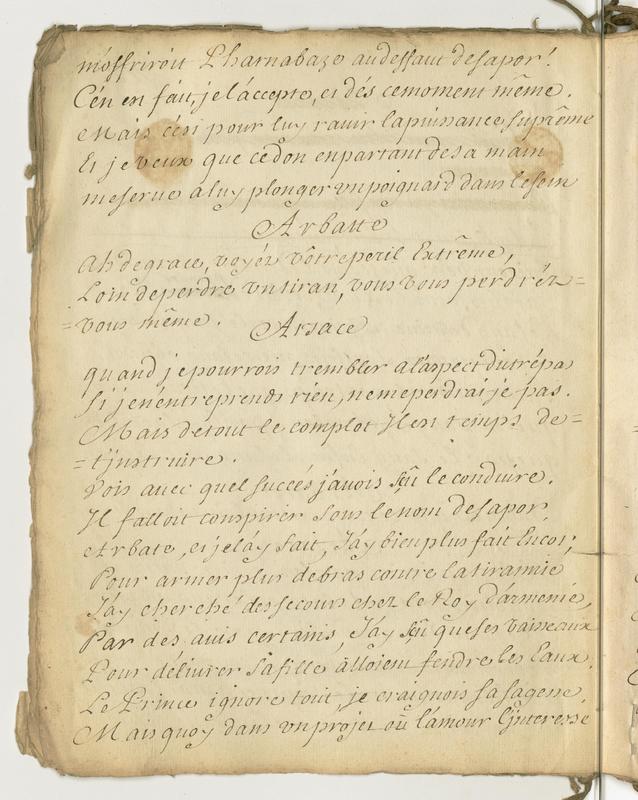 m'offriroit Pharnabaze audeffaut desapor!
C'én en fait, je l'accepte, et dés cemoment même.
Mais c'ési pour luy ravir lapuissance suprême
Et je veux que cédon enpartant desa main
meserve aluy plonger vnpoignard dans lesein
Arbatte
Ah degrace, voyéz vôtreperil Extrême,
Loin deperdre vntiran, vous vous perdréz=
=vous même.
Arsace
quand jepourrois trembler al'aspect dutrépa
si jen'entreprends rien, nemeperdrai je pas.
Mais detout le complot Il est temps de=
=t'instruire.
Vois avec quel succés j'avois sçû le conduire.
Il falloit conspirer sous lenom desapor
Arbate, et jelay fait, J'ay bienplus fait Encor;
Pour armer plus debras contre latirannie
J'ay cherché dessecours chez le Roy d'armenie,
Par des avis certains, J'ay sçû queses vaisseaux
Pour délivrer safille alloient fendre les Eaux.
Le Prince ignore tout, je craignois sasagesse,
Mais quoy dans vnprojet où l'amour L'jnteresse